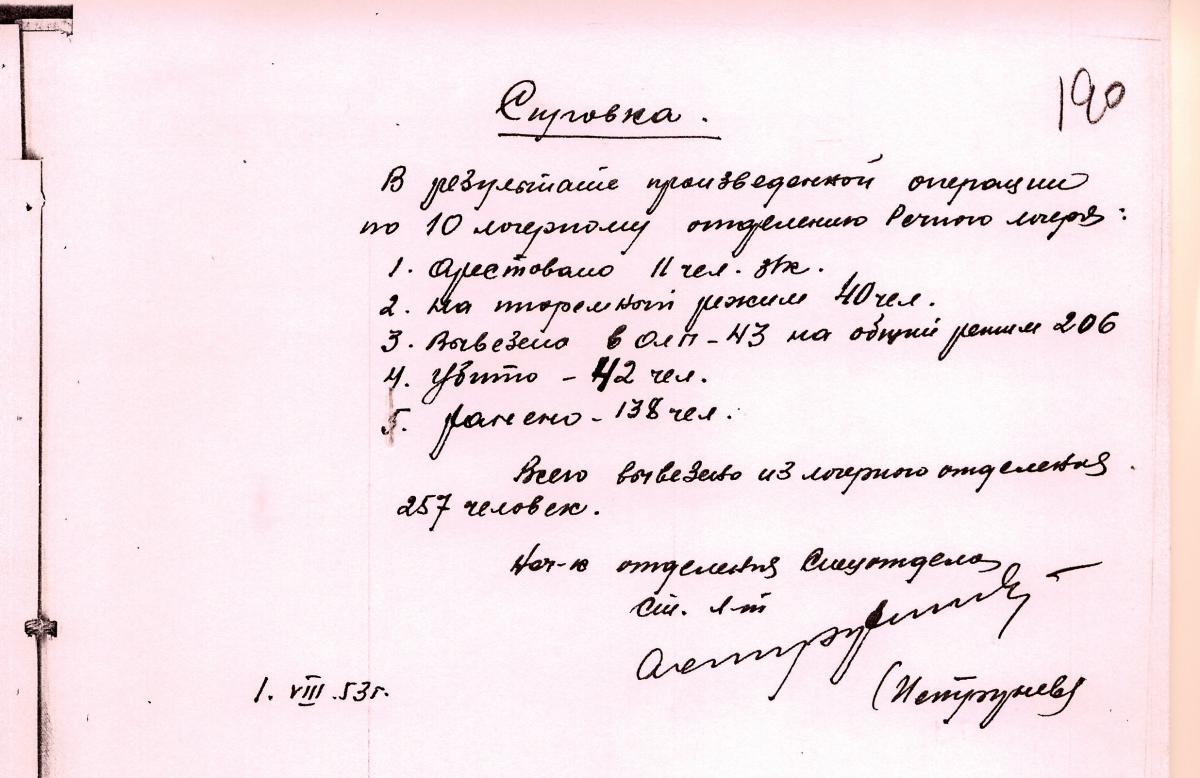 190
Справка.
В результате произведенной операции
по 10 лагерному отделению Речного лагеря:
1. Арестовано 11 чел. з/к.
2. На тюремный режим 40 чел.
3. Вывезено в ОЛП-43 на общий режим 206
4. Убито – 42 чел.
5. Ранено – 138 чел.
Всего вывезено из лагерного отделения
257 человек.
Нач-к отделения Спецотдела
Ст. л-т
1. VIII.53г.